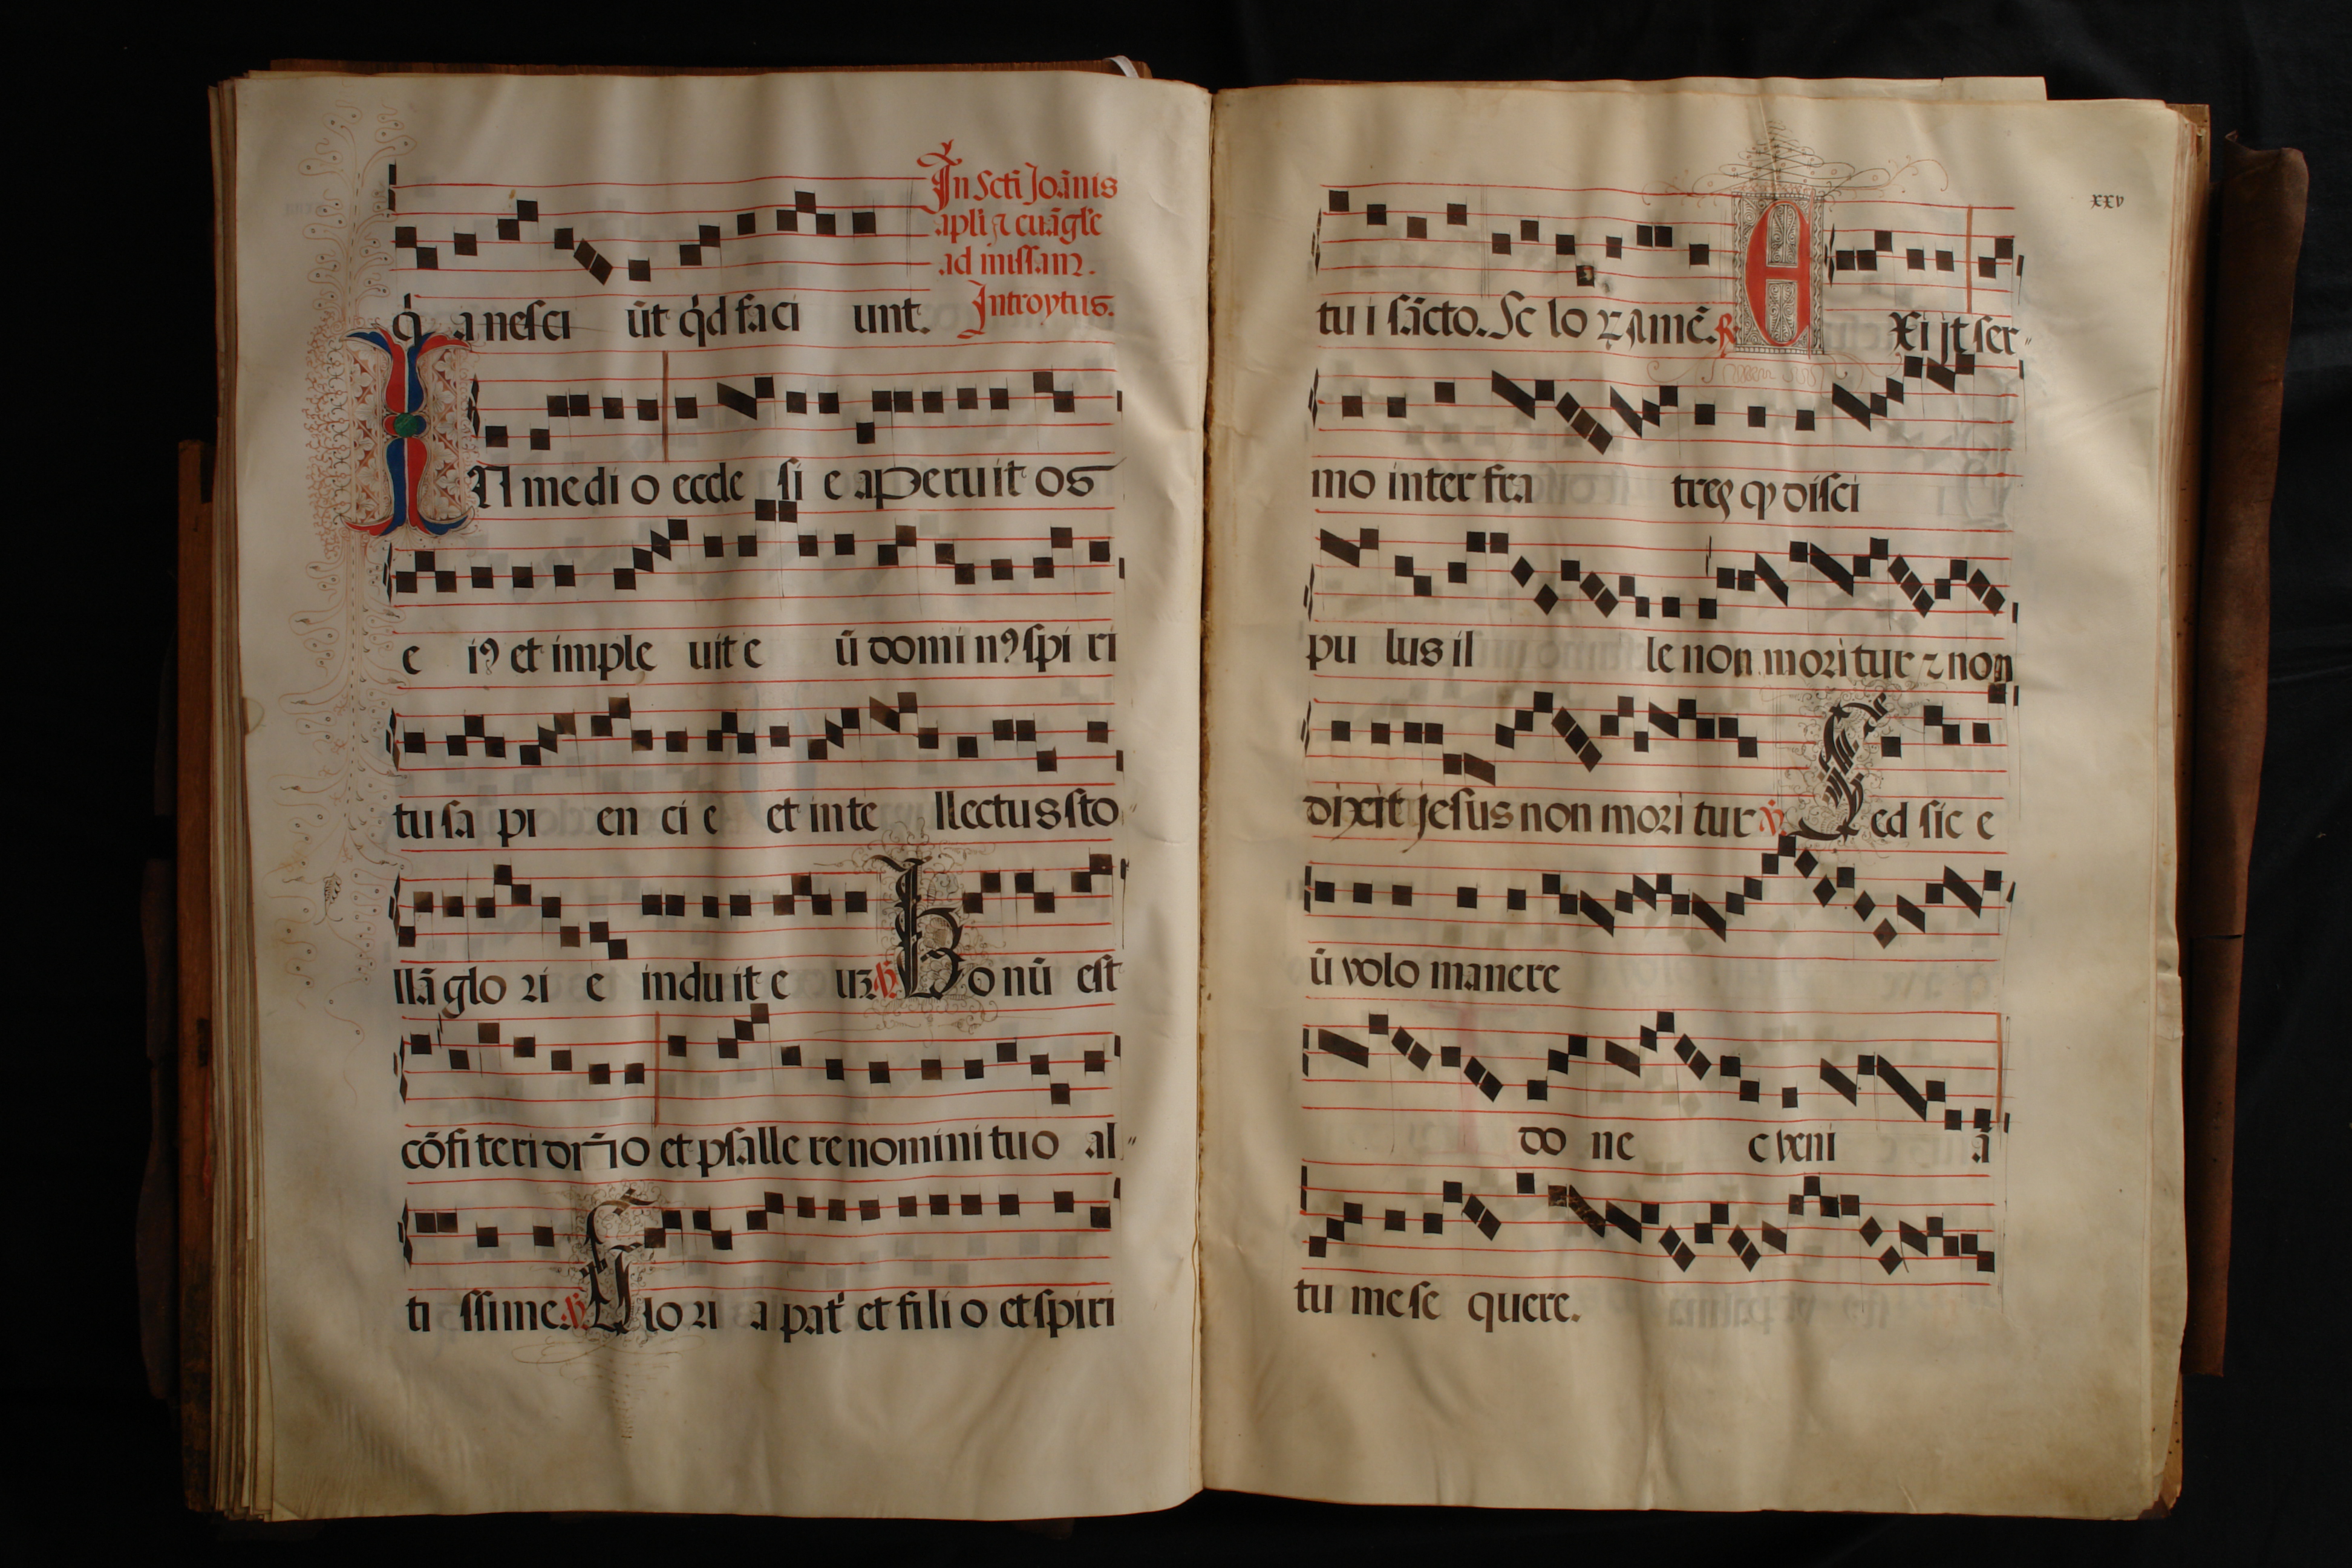 In Scti Joānis
apli ⁊ euāgle
ad missam.
Introytus.
q̓ a nesci ūt q̓d faci unt.
IN medi o eccle si e aperuit os
e iꝰ et imple uit e ū domi nꝰ spi ri
tu sa pi en ci e et inte llectus sto
llā glo ri e indu it e uꝫ ℣ Bo nū est
cōfi teri dn̄o et psalle re nomini tuo al
ti ssime. ℣ Glo ri a pat̓ et fili o et spiri
xxv
tu i sācto. Se lo ꝝ Amē. ℟ EXi jt ser
mo inter fra tres ꝙ disci
pu lus il le non mori tur ⁊ non
dixit Jesus non mori tur ℣ Sed sic e
ū volo manere
do ne c veni ā
tu me se quere.